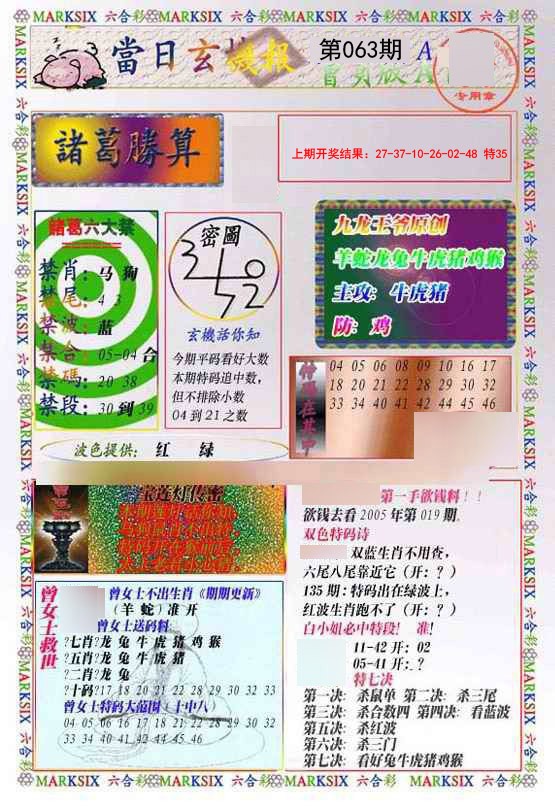 MARKSIX 六合彩 MARKSIX 六合彩 MARKSIX 六合彩 MARKSIX 六合彩
當日玄機报
第063期 A
专用章
諸葛勝算
上期开奖结果: 27-37-10-26-02-48 特35
諸葛六大禁
禁肖: 马 狗
禁尾: 4 3
禁波: 蓝
禁合: 05-04 合
禁碼: 20 38
禁段: 30 到 39
密圖
玄機話你知
今期平码看好大数
本期特码追中数,
但不排除小数
04 到 21 之数
九龙王爷原创
羊蛇龙兔牛虎猪鸡猴
主攻: 牛虎猪
防: 鸡
04 05 06 08 09 10 16 17
18 20 21 22 28 29 30 32
33 34 40 41 42 44 45 46
波色提供: 红 绿
宝莲灯传密
曾女士救世
曾女士不出生肖《期期更新》
(羊 蛇) 准 开
曾女士送码料
?七肖?龙 兔 牛 虎 猪 鸡 猴
?五肖?龙 兔 牛 虎 猪
?二肖?龙 兔
?十码?17 18 20 21 22 28 29 30 32 33
曾女士特码大范围 (十中八)
04 05 06 16 17 18 21 22 28 29 30 32
33 34 40 41 42 44 45 46
第一手欲钱料!!
欲钱去看 2005 年第 019 期.
双色特码诗
双蓝生肖不用查,
六尾八尾靠近它 (开: ?)
135 期: 特码出在绿波上,
红波生肖跑不了 (开: ?)
白小姐必中特段! 准!
11-42 开: 02
05-41 开: ?
特七决
第一决: 杀鼠单 第二决: 杀三尾
第三决: 杀合数四 第四决: 看蓝波
第五决: 杀红波
第六决: 杀三门
第七决: 看好兔牛虎猪鸡猴
MARKSIX 六合彩 MARKSIX 六合彩 MARKSIX 六合彩 MARKSIX 六合彩